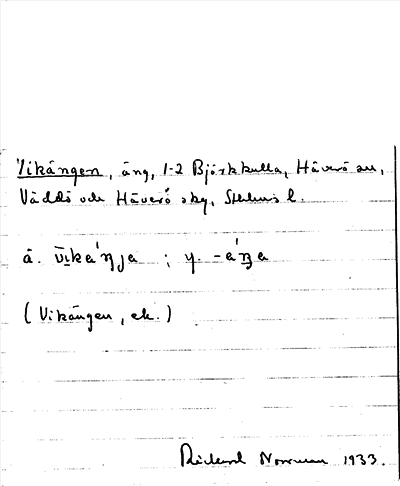 Vikängen, äng, 1-2 Björkkulla, Häverö sn,
Väddö och Häverö skg, Sthlms l.
ä. vīka´ŋja ; y. -a´ŋa
(Vikängen, ek.)
Rickard Norrman 1933.